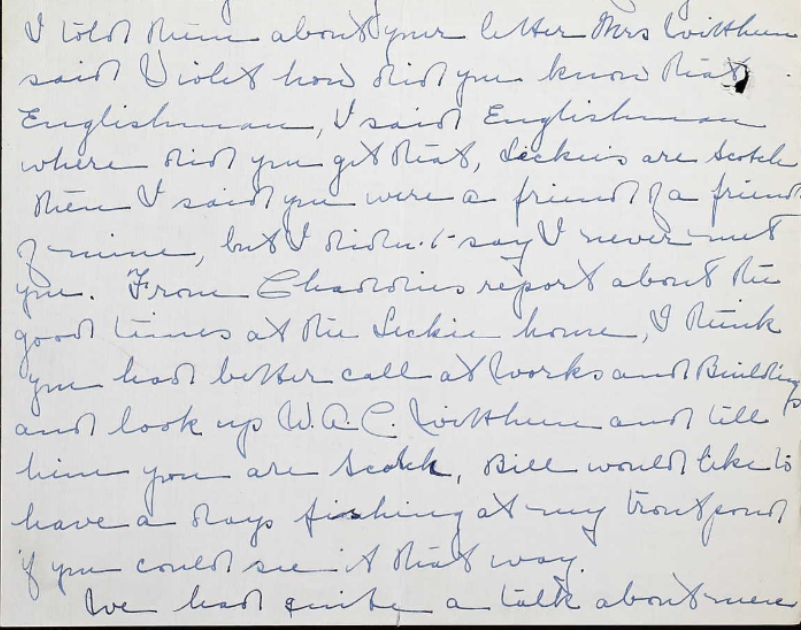 I told them about your letter Mrs Witthun
said Violet how did you know that
Englishman, I said Englishman
where did you get that, Leckies are Scotch
then I said you were a friend of a friend
of mine, but I didn't say I never met
you. From report about the
good times at the Leckie home, I think
you had better call at Works and Buildings
and look up W.A.C. Witthun and tell
him you are Scotch, Bill would like to
have a days fishing at my trout pond
if you could see it that way.
We had quite a talk about